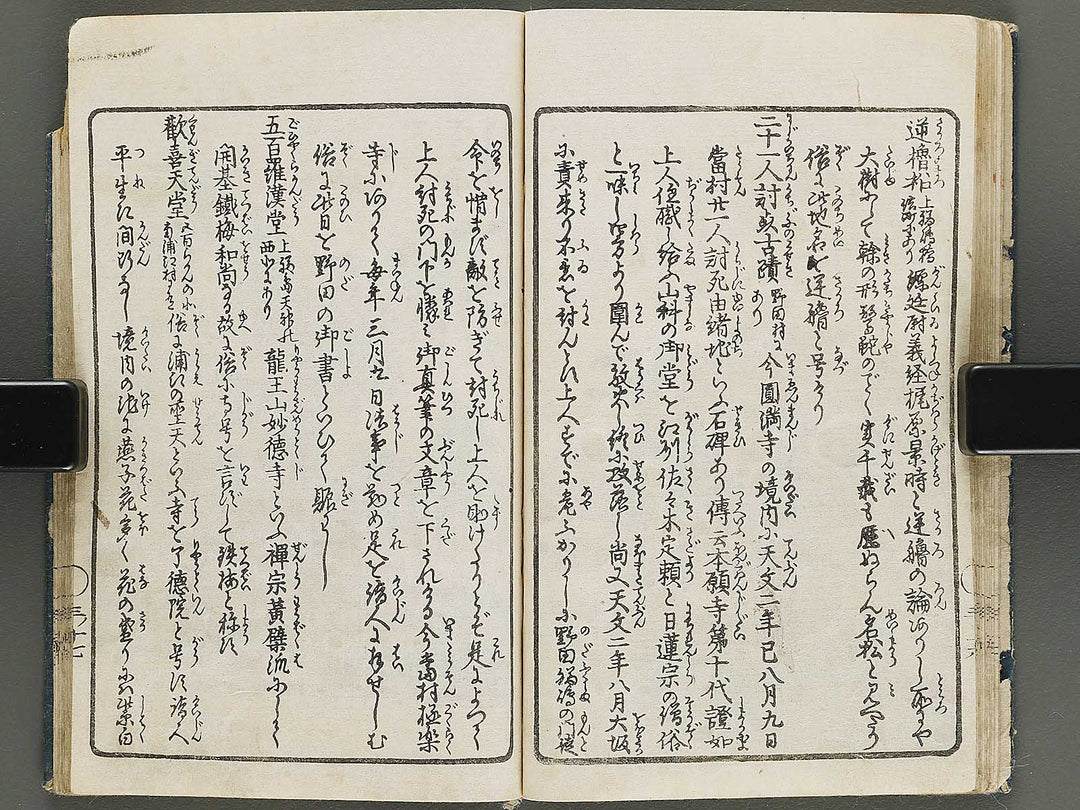 逆櫓松 上福嶋
源廷尉義経梶原景時と逆艪の論
大樹にして幹の形 実千歳も歴ぬらん名松と見へたり
俗に此地名を逆艪と号すなり
二十一人討死古蹟 野田村にあり 今圓満寺の境内に天文二年巳八月九日
當村廿一人討死由緒地といふ石碑あり傳云本願寺第十代證如
上人住職し給ふ山科の御堂を江列佐々木定頼と日蓮宗の僧俗
と一味し 方より圍んで放火し終に破落し尚又天文二年八月大坂
に責来り不意を討んとす上人 に野田福嶋の門徒
令を惜まず敵を防ぎて討死し上人を助けたり 是によつて
上人討死の門下を 御真筆の文章を下されける今當村極楽
寺にありて毎年三月九日法事を勤め是を諸人に拝せしむ
俗に此日を野田の御書といひて賑はし
五百羅漢堂 上福嶋天神の西少にあり 龍王山妙徳寺といふ禅宗黄檗派にして
開基鐵梅和尚 故に俗に寺号を言はずして鉄梅と称す
歡喜天堂 五百らかんの北 浦江村にあり 俗に浦江の聖天といふ寺を了徳院と号す諸人
平生に間断なし境内の池に燕子花多く花の盛りには紫白